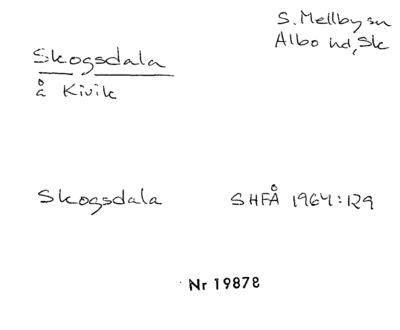 S. Mellby sn
Albo hd, Sk
Skogsdala
å Kivik
Skogsdala SHFÅ 1964:129
Nr 19878